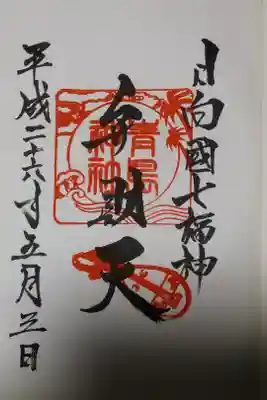 日向國七福神
弁財天
青島
神社
平成二十六年五月三日